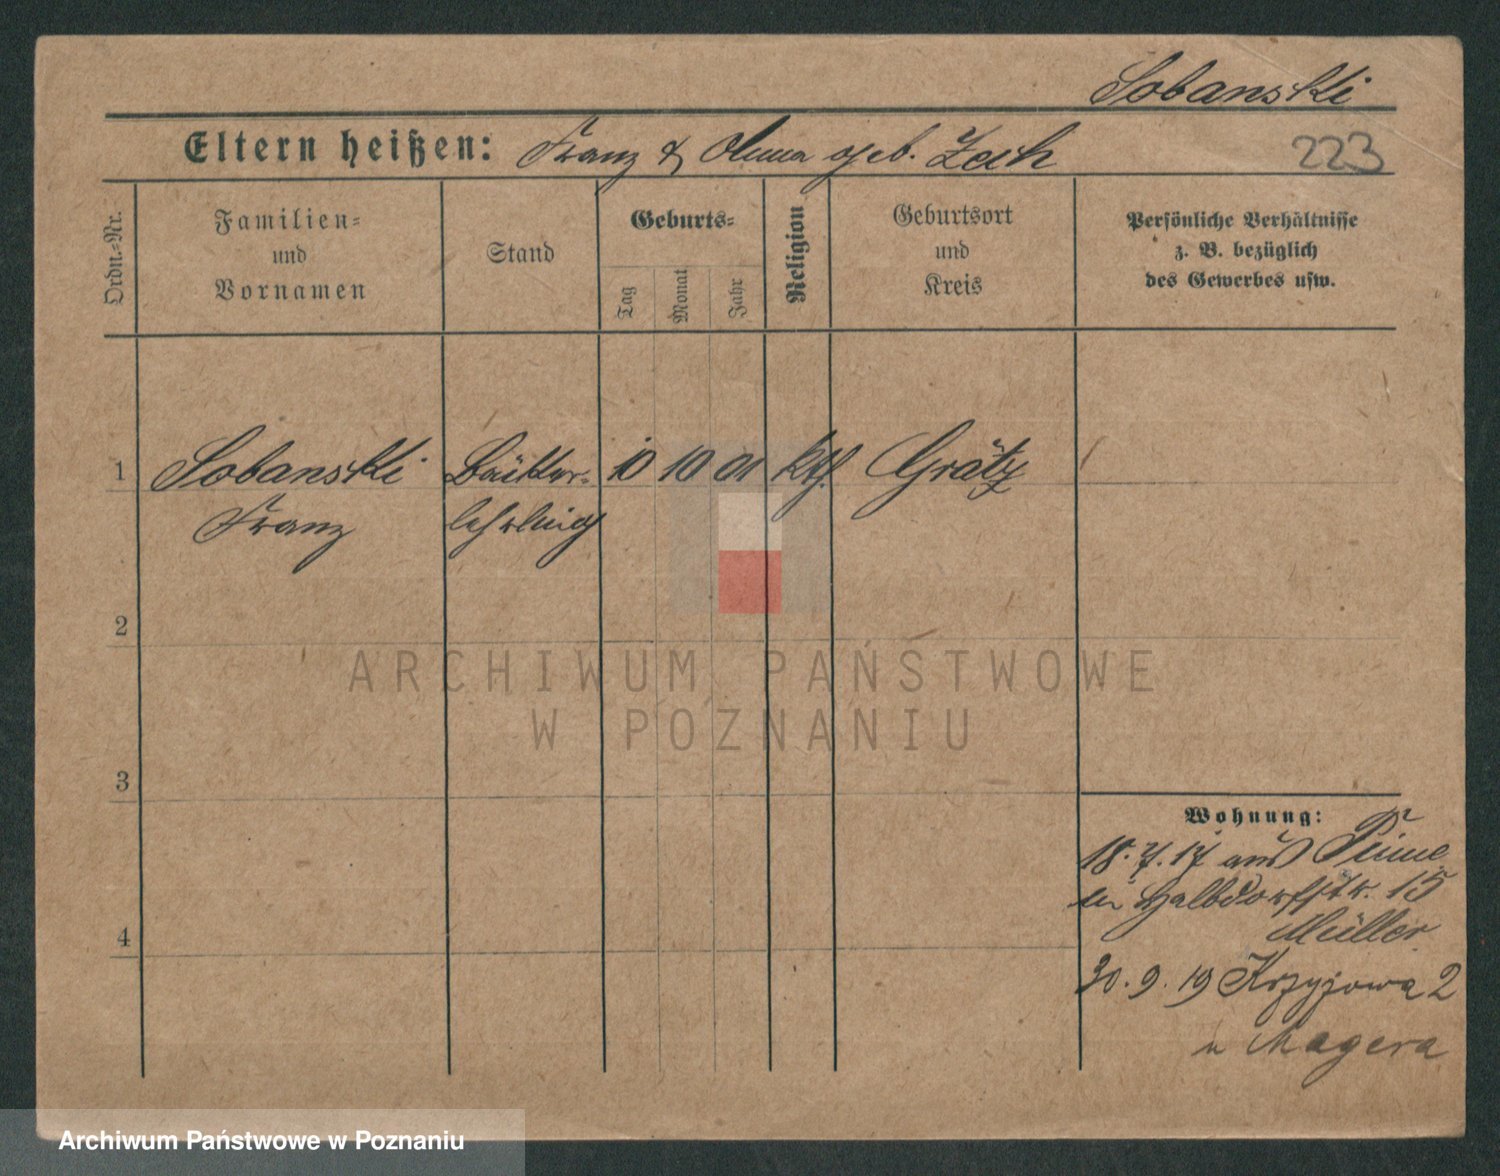 Sobanski
Eltern heißen: Franz & Anna geb. Zech
223
Ordn.-Nr.
Familien-
und
Vornamen
Stand
Geburts-
Tag
Monat
Jahr
Religion
Geburtsort
und
Kreis
Persönliche Verhältnisse
z. B. bezüglich
des Gewerbes usw.
1 Sobanski Bäcker- 10 10 01 kth. Grätz
Franz lehrling
2
3
4
Wohnung:
18.7.17 aus Pinne
Halbdorfstr. 15
Müller
30.9.19 Krzyżowa 2
Magera
ARCHIWUM PAŃSTWOWE
W POZNANIU
Archiwum Państwowe w Poznaniu